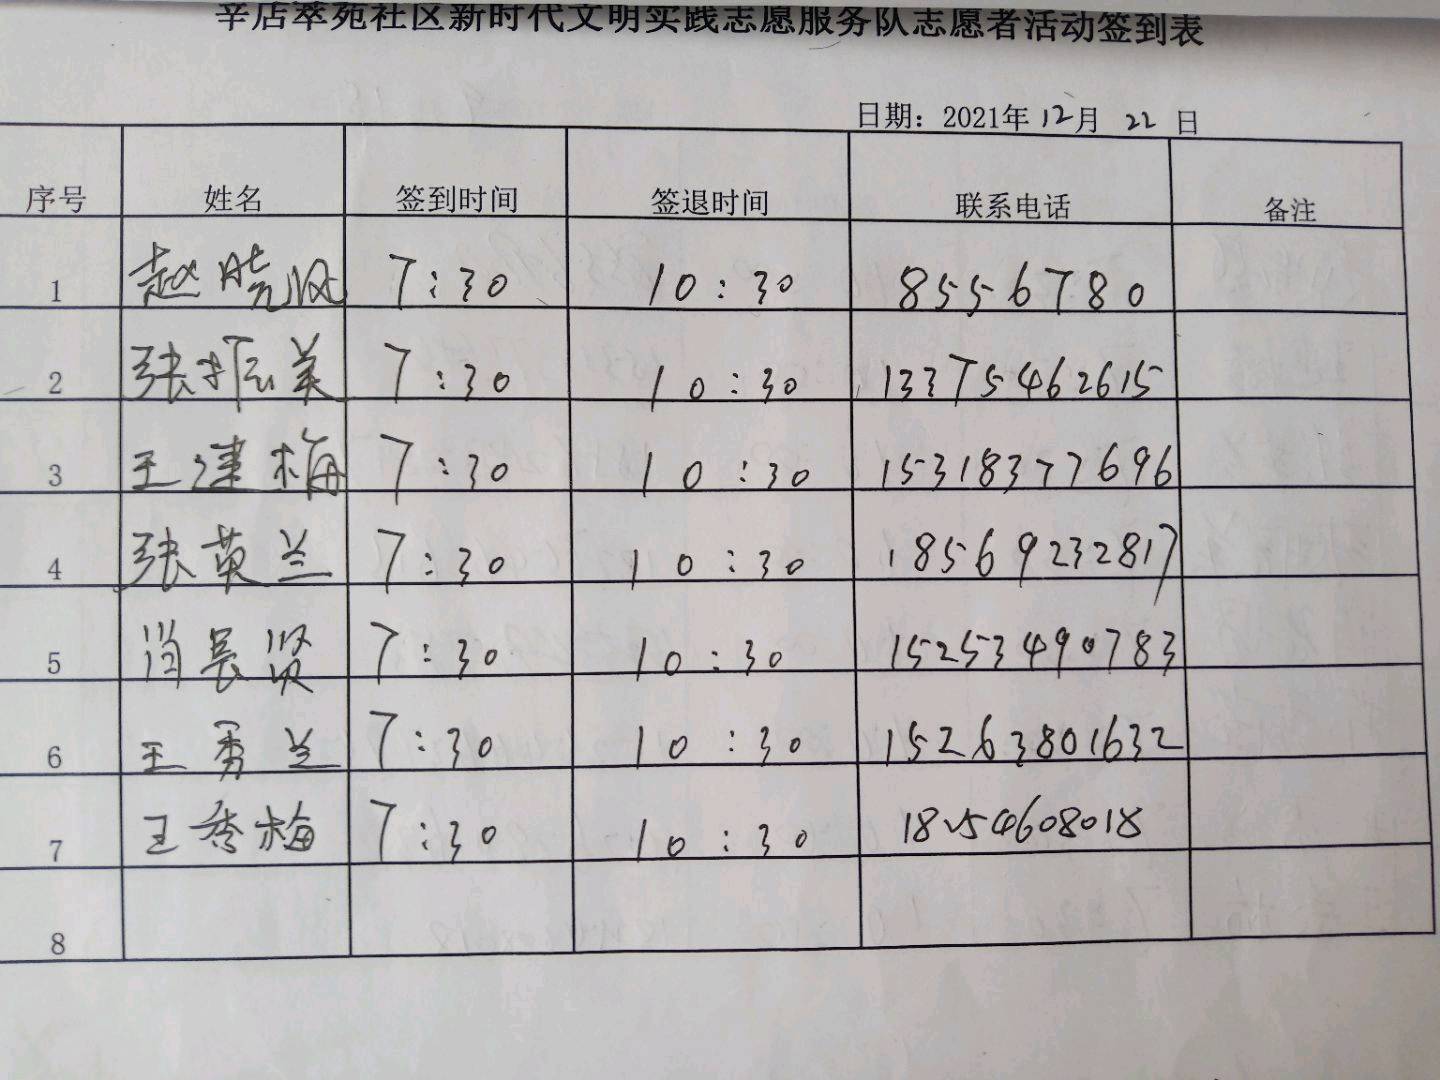 辛店萃苑社区新时代文明实践志愿服务队志愿者活动签到表
日期：2021年12月22日
序号 姓名 签到时间 签退时间 联系电话 备注
1 赵晓 7:30 10:30 8556780
2 张振美 7:30 10:30 13375462615
3 王建梅 7:30 10:30 15318377696
4 张英兰 7:30 10:30 18569232817
5 肖长贤 7:30 10:30 15253490783
6 王秀兰 7:30 10:30 15263801632
7 王秀梅 7:30 10:30 18254608018
8